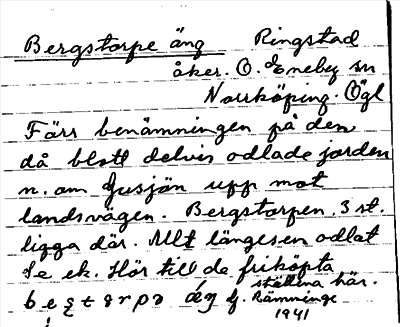 Bergstorpe äng Ringstad
åker. Ö. Eneby sn
Norrköping. Ögl
Färr benämningen på den
då blott delvis odlade jorden
n. om Gusjön upp mot
landsvägen. Bergstorpen. 3 st.
ligga där. Allt längesen odlat
Se ek. Hör till de friköpta
ställena här.
äŋ g. Rämninge
1941